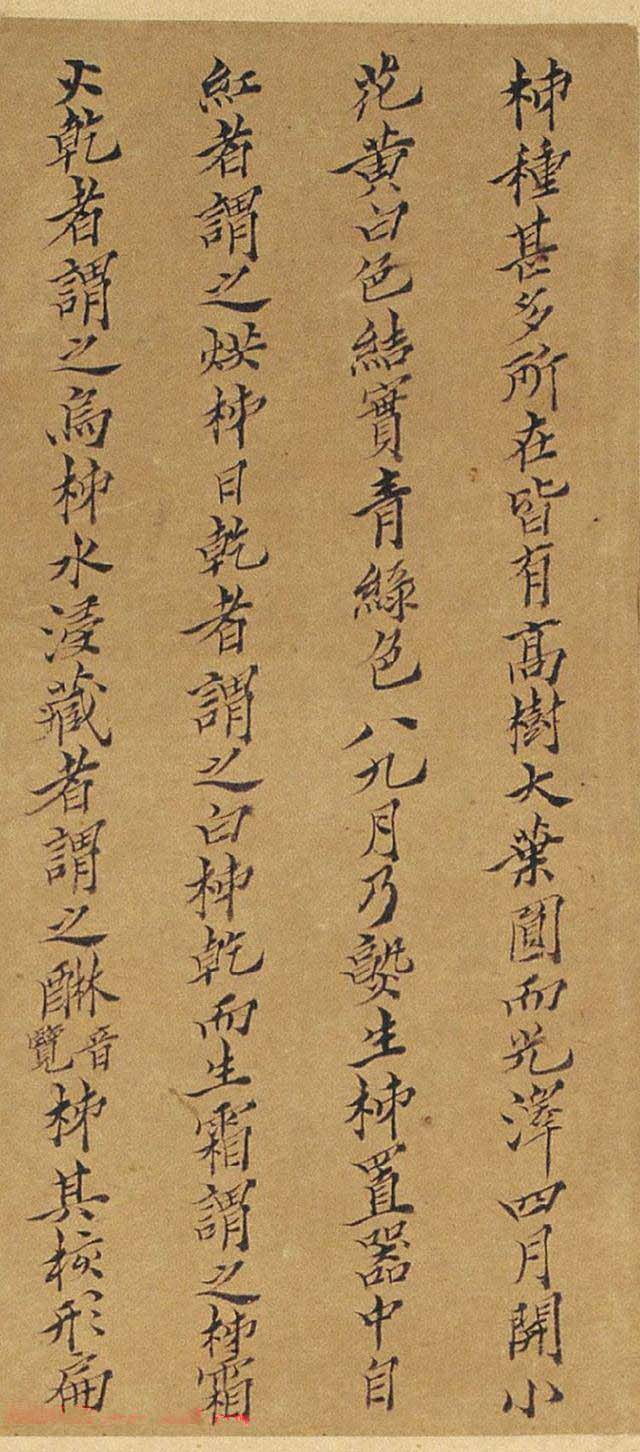 柹種甚多所在皆有高樹大葉圓而光澤四月開小
花黄白色結實青緑色八九月乃熟生柹置器中自
紅者謂之烘柹日乾者謂之白柹乾而生霜謂之柹霜
火乾者謂之烏柹水浸藏者謂之醂音覽柹其核形扁